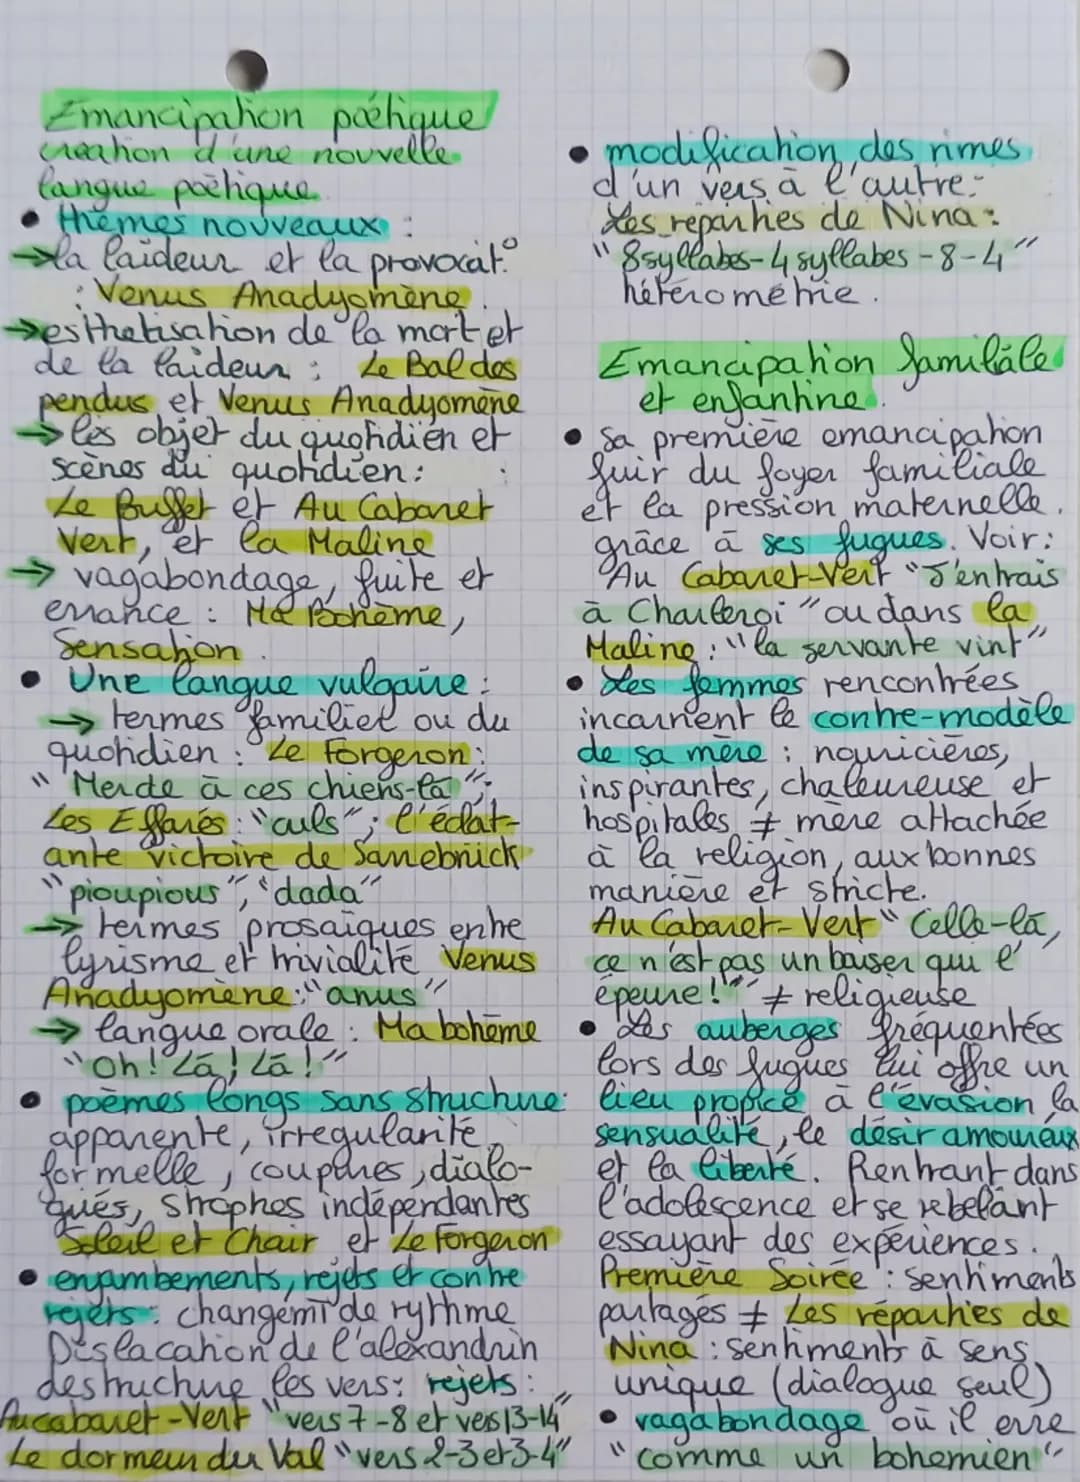 Emancipation poétique
création d'une nouvelle
langue poétique.
• thèmes nouveaux :
→ la laideur et la provocat°
: Venus Anadyomène.
→ esthetisation de la mort et
de la laideur : Le Bal des
pendus et Venus Anadyomène
→ les objet du quotidien et
scènes du quotidien :
Le Buffet et Au Cabaret
Vert, et la Maline
→ vagabondage, fuite et
errance : Ma Bohème,
Sensation.
• Une langue vulgaire :
→ termes familier ou du
quotidien : Le Forgeron :
"Merde à ces chiens-là" ;
Les Effarés : "culs" ; l'éclat-
ante victoire de Sarrebrück
"pioupious", "dada"
→ termes prosaïques entre
lyrisme et trivialité Venus
Anadyomène : "anus"
→ langue orale : Ma bohème
"Oh! Là! Là!"
• poèmes longs sans structure
apparente, irregularité
formelle, coupures, dialo-
gués, strophes indépendantes
Soleil et Chair et Le Forgeron
• enjambements, rejets et contre
rejets : changemt de rythme
Dislacation de l'alexandrin
destructure les vers : rejets :
Au cabaret-Vert "vers 7-8 et vers 13-14"
Le dormeur du Val "vers 2-3 et 3-4"
• modification des rimes
d'un vers à l'autre :
Les reparties de Nina :
"8 syllabes - 4 syllabes - 8 - 4"
hétérométrie.
Emancipation familiale
et enfantine.
• Sa première emancipation
fuir du foyer familiale
et la pression maternelle.
grâce à ses fugues. Voir :
Au Cabaret-Vert "J'entrais
à Charleroi" ou dans la
Maline : "la servante vint"
• Les femmes rencontrées
incarnent le contre-modèle
de sa mère : nouricières,
inspirantes, chaleureuse et
hospitales ≠ mère attachée
à la religion, aux bonnes
manière et stricte.
Au Cabaret-Vert "Celle-là,
ce n'est pas un baiser qui l'
épeure!" ≠ religieuse
• Les auberges fréquentées
lors des fugues lui offre un
lieu propice à l'évasion la
sensualité, le désir amoureux
et la liberté. Rentrant dans
l'adolescence et se rebelant
essayant des expériences.
Première Soirée : sentiments
partagés ≠ Les réparties de
Nina : sentiments à sens
unique (dialogue seul)
• vagabondage où il erre
"comme un bohemien"